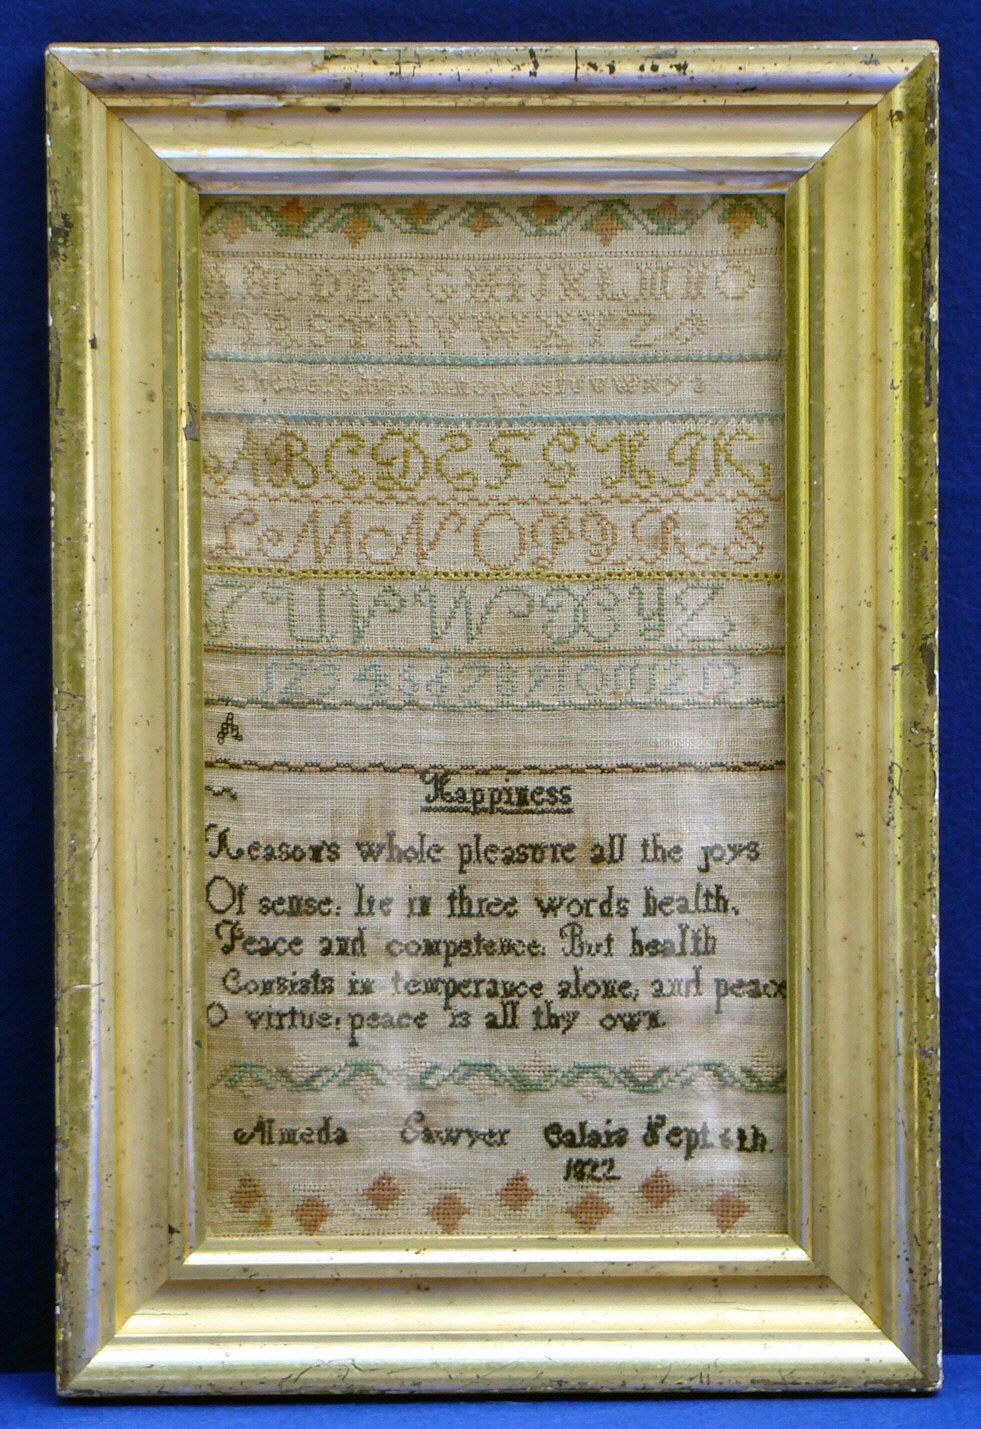 A B C D E F G H I J K L M N O
P Q R S T U V W X Y Z &
a b c d e f g h i j k l m n o p q r s t u v w x y z
A B C D E F G H I K
L M N O P Q R S
T U V W X Y Z
1 2 3 4 5 6 7 8 9 10 11 12 13
A
Happiness
Reason's whole pleasure all the joys
Of sense, lie in three words health,
Peace and competence, But health
Consists in temperance alone, and peace
O virtue, peace is all thy own.
Almeda Sawyer Calais Sept 6th.
1822